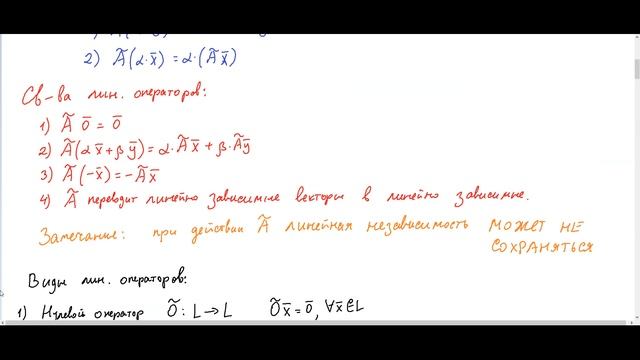 2) Ã(α·x̄) = α·(Ãx̄)
Св-ва лин. операторов:
1) Ã 0̄ = 0̄
2) Ã(αx̄ + βȳ) = α·Ãx̄ + β·Ãȳ
3) Ã(-x̄) = -Ãx̄
4) Ã переводит линейно зависимые векторы в линейно зависимые.
Замечание: при действии Ã линейная независимость МОЖЕТ НЕ
СОХРАНЯТЬСЯ
Виды лин. операторов:
1) Нулевой оператор Õ: L→L Õx̄ = 0̄, ∀x̄∈L